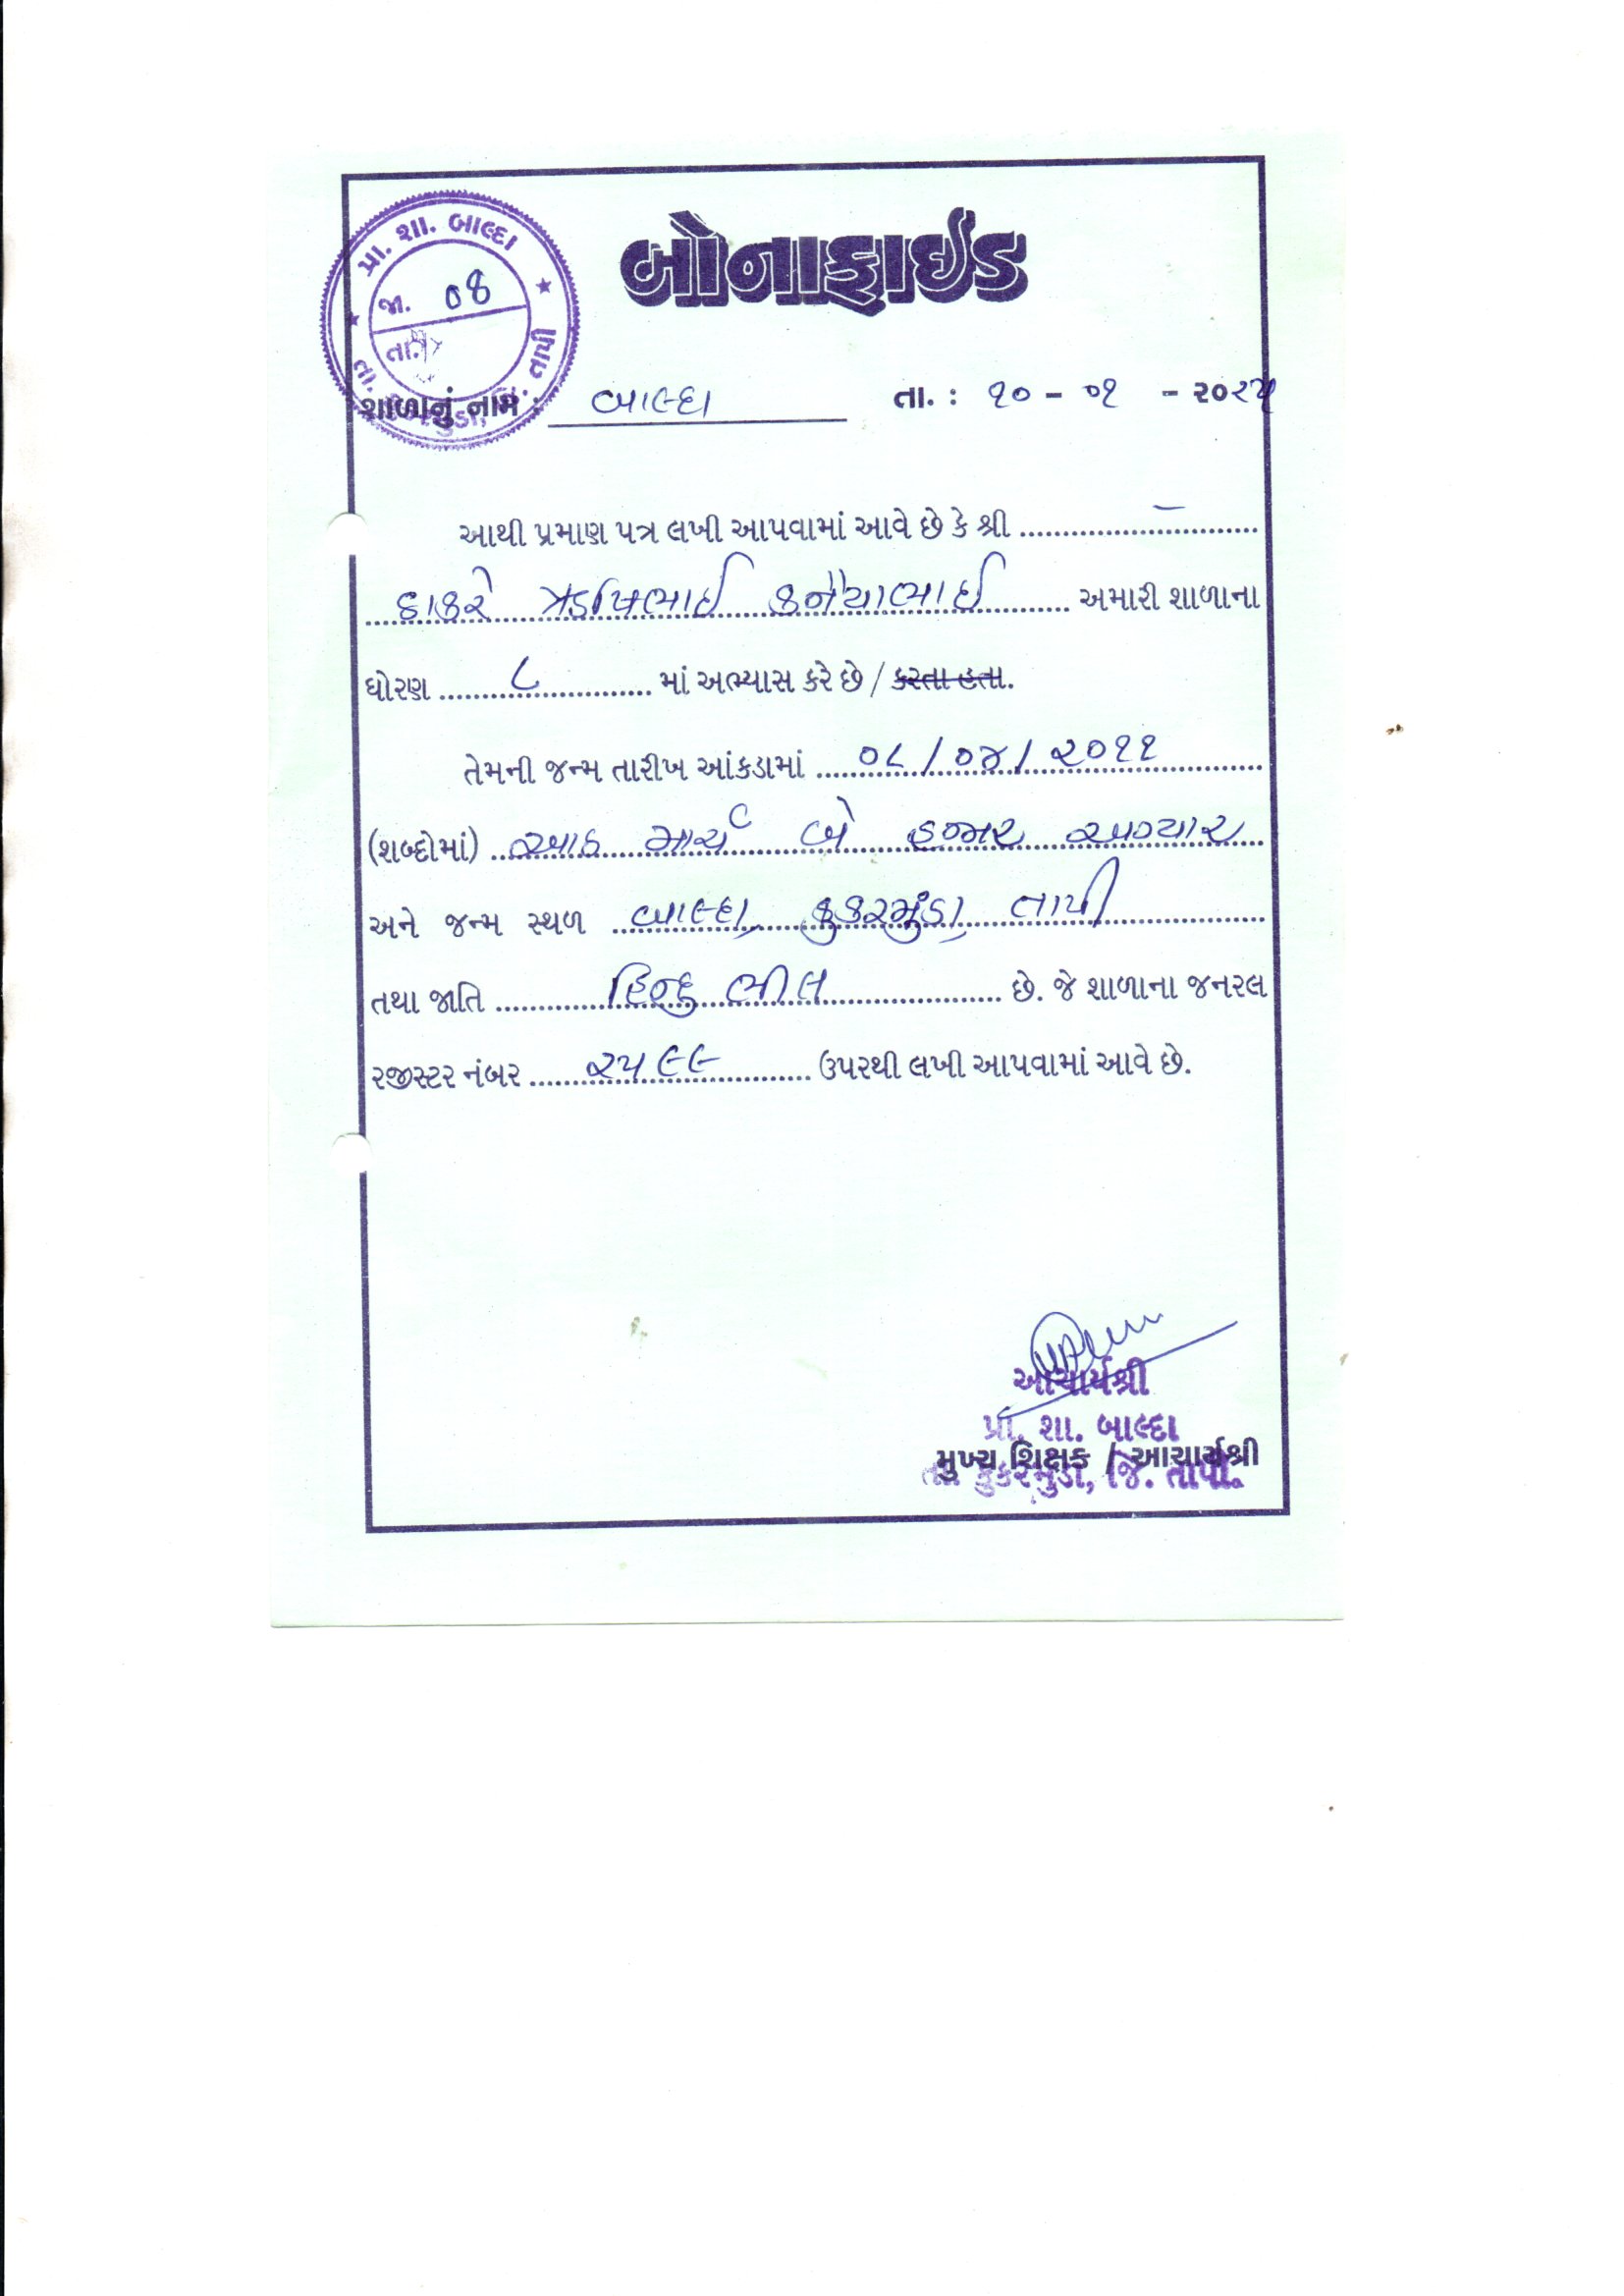 બોનાફાઈડ
પ્રા. શા. બાલ્દા
જા. 08
તા.
તા. જિ. તાપી
શાળાનું નામ : બાલ્દા તા. : ૧૦ - ૦૧ - ૨૦૨૫
આથી પ્રમાણ પત્ર લખી આપવામાં આવે છે કે શ્રી –
ઠાકરે કનૈયાભાઈ અમારી શાળાના
ધોરણ ૮ માં અભ્યાસ કરે છે / કરતા હતા.
તેમની જન્મ તારીખ આંકડામાં ૦૮/૦૪/૨૦૧૧
(શબ્દોમાં) આઠ માર્ચ બે હજાર અગ્યાર
અને જન્મ સ્થળ બાલ્દા, કુકરમુંડા, તાપી
તથા જાતિ હિન્દુ ભીલ છે. જે શાળાના જનરલ
રજીસ્ટર નંબર ૨૫૯૯ ઉપરથી લખી આપવામાં આવે છે.
આચાર્યશ્રી
પ્રા. શા. બાલ્દા
મુખ્ય શિક્ષક / આચાર્યશ્રી
તા. કુકરમુંડા, જિ. તાપી.